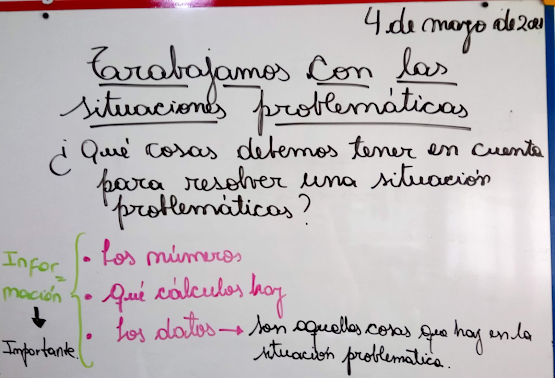 4 de mayo de 20
Tarabajamos con las
situaciones problemáticas
¿Qué cosas debemos tener en cuenta
para resolver una situación
problemáticas?
Infor=
mación
Importante.
• Los números
• Qué cálculos hay
• Los datos → Son aquellas cosas que hay en la
situación problemática.